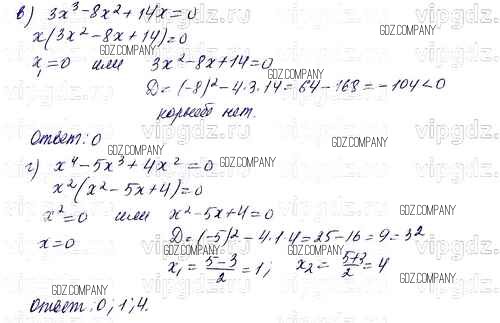 в) 3x³-8x²+14x=0
x(3x²-8x+14)=0
x₁=0 или 3x²-8x+14=0
D=(-8)²-4·3·14=64-168=-104<0
корней нет.
Ответ: 0
г) x⁴-5x³+4x²=0
x²(x²-5x+4)=0
x²=0 или x²-5x+4=0
x=0 D=(-5)²-4·1·4=25-16=9=3²
x₁=(5-3)/2=1; x₂=(5+3)/2=4
Ответ: 0; 1; 4.
GDZ.COMPANY
vipgdz.ru